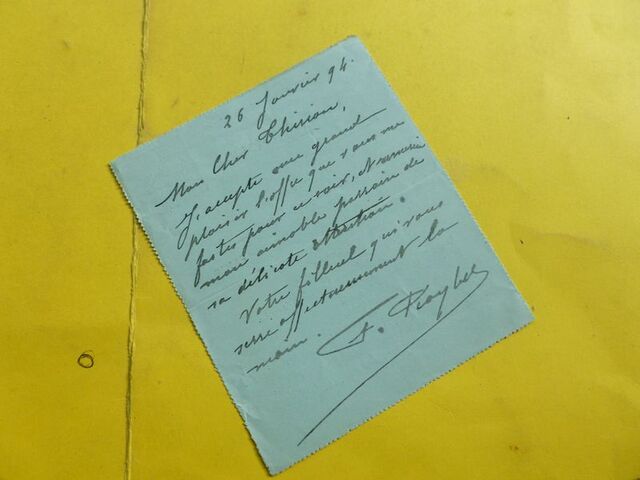 26 Janvier 94.
Mon Cher Thirion,
J'accepte avec grand
plaisir l'offre que vous me
faites pour ce soir, et remercie
mon aimable parrain de
sa délicate attention.
Votre filleul qui vous
serre affectueusement la
main. F. Roybet